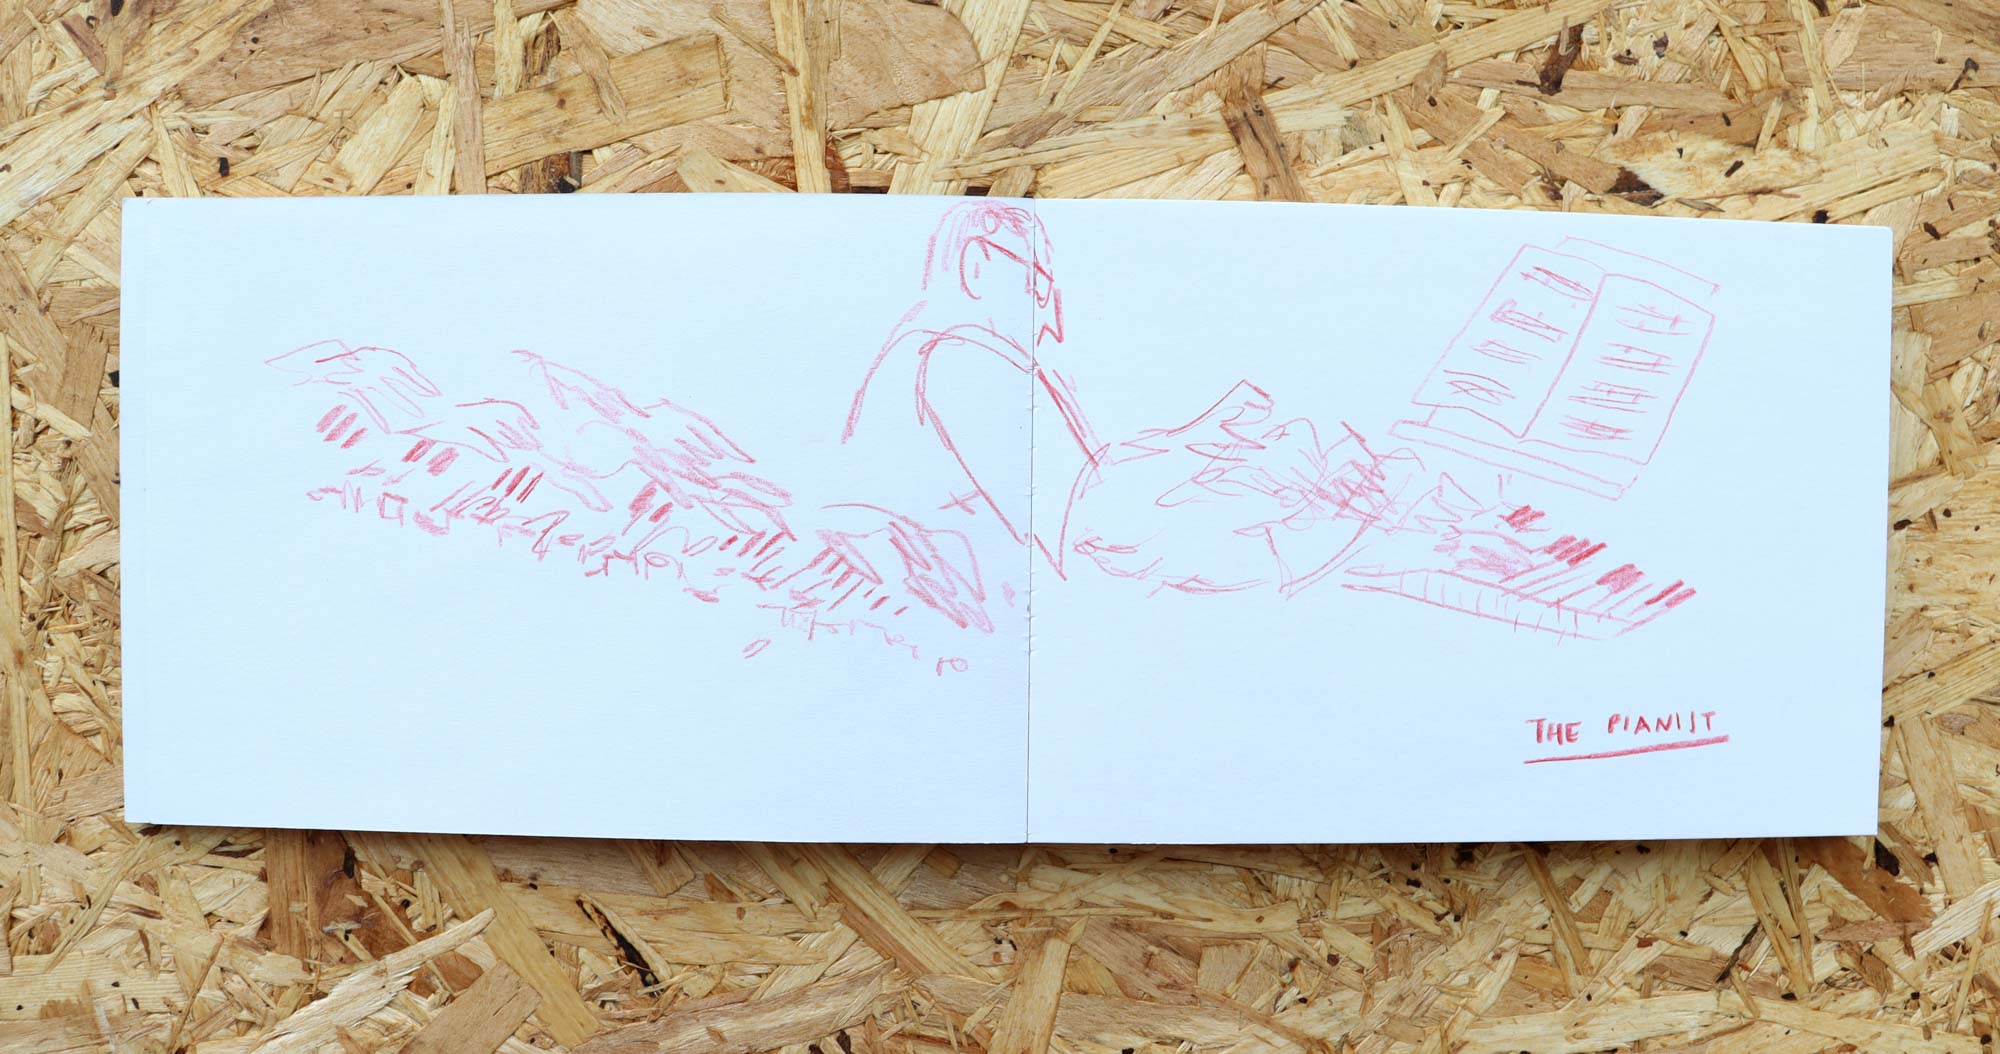 THE PIANIST